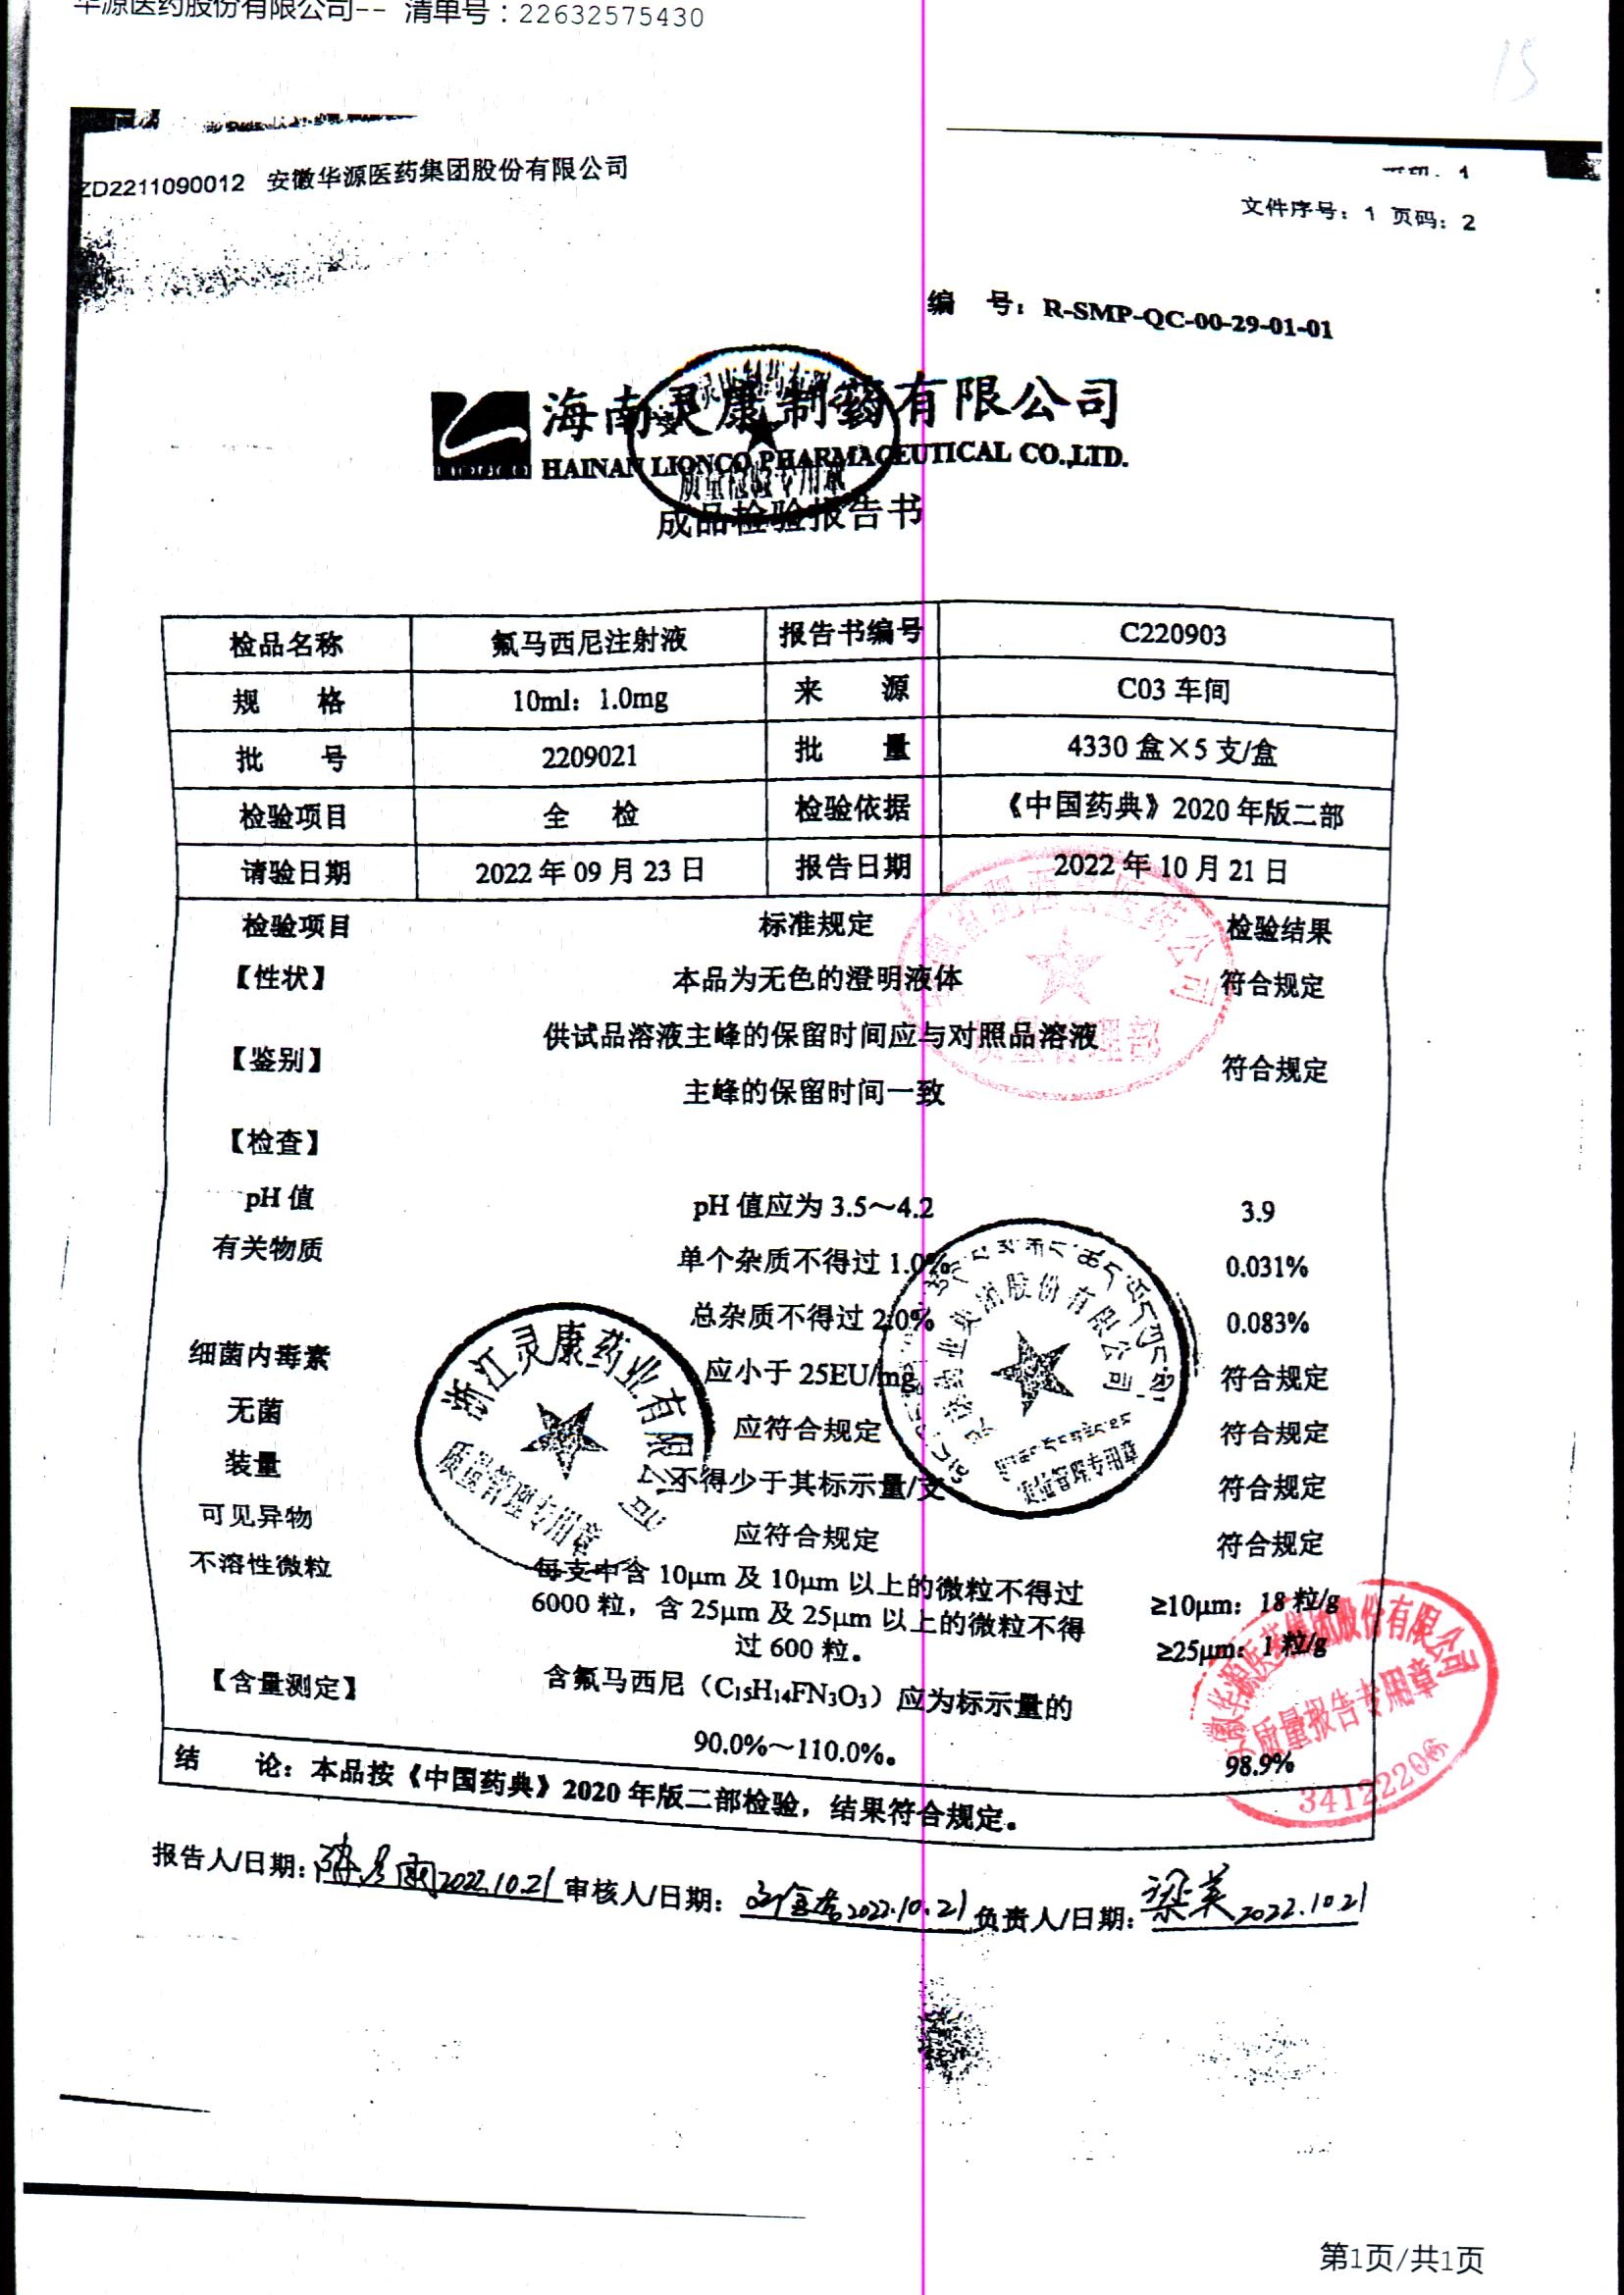 华源医药股份有限公司-- 清单号：22632575430
15
ZD2211090012 安徽华源医药集团股份有限公司
文件序号：1 页码：2
编 号：R-SMP-QC-00-29-01-01
海南灵康制药有限公司
HAINAN LIONCO PHARMACEUTICAL CO.,LTD.
质量检验专用章
成品检验报告书
检品名称 氟马西尼注射液 报告书编号 C220903
规 格 10ml：1.0mg 来 源 C03 车间
批 号 2209021 批 量 4330 盒×5 支/盒
检验项目 全 检 检验依据 《中国药典》2020 年版二部
请验日期 2022 年 09 月 23 日 报告日期 2022 年 10 月 21 日
检验项目 标准规定 检验结果
【性状】 本品为无色的澄明液体 符合规定
供试品溶液主峰的保留时间应与对照品溶液
【鉴别】 符合规定
主峰的保留时间一致
质量管理部
【检查】
pH 值 pH 值应为 3.5～4.2 3.9
有关物质 单个杂质不得过 1.0% 0.031%
总杂质不得过 2.0% 0.083%
细菌内毒素 应小于 25EU/mg 符合规定
无菌 应符合规定 符合规定
装量 不得少于其标示量/支 符合规定
可见异物 应符合规定 符合规定
浙江灵康药业有限公司
质量管理专用章
股份有限公司
不溶性微粒 每支中含 10μm 及 10μm 以上的微粒不得过 ≥10μm：18 粒/g
6000 粒，含 25μm 及 25μm 以上的微粒不得 ≥25μm：1 粒/g
过 600 粒。
【含量测定】 含氟马西尼（C₁₅H₁₄FN₃O₃）应为标示量的
90.0%～110.0%。 98.9%
安徽华源医药集团股份有限公司
质量报告专用章
34122206
结 论：本品按《中国药典》2020 年版二部检验，结果符合规定。
报告人/日期： 2022.10.21 审核人/日期： 2022.10.21 负责人/日期：梁美 2022.10.21
第1页/共1页